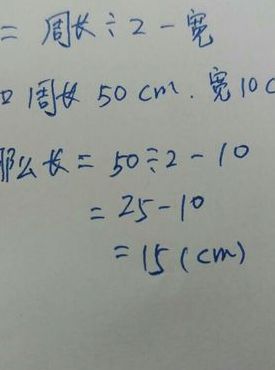 = 周长÷2-宽
口周长 50cm. 宽10c
那么长 = 50÷2-10
= 25-10
= 15(cm)